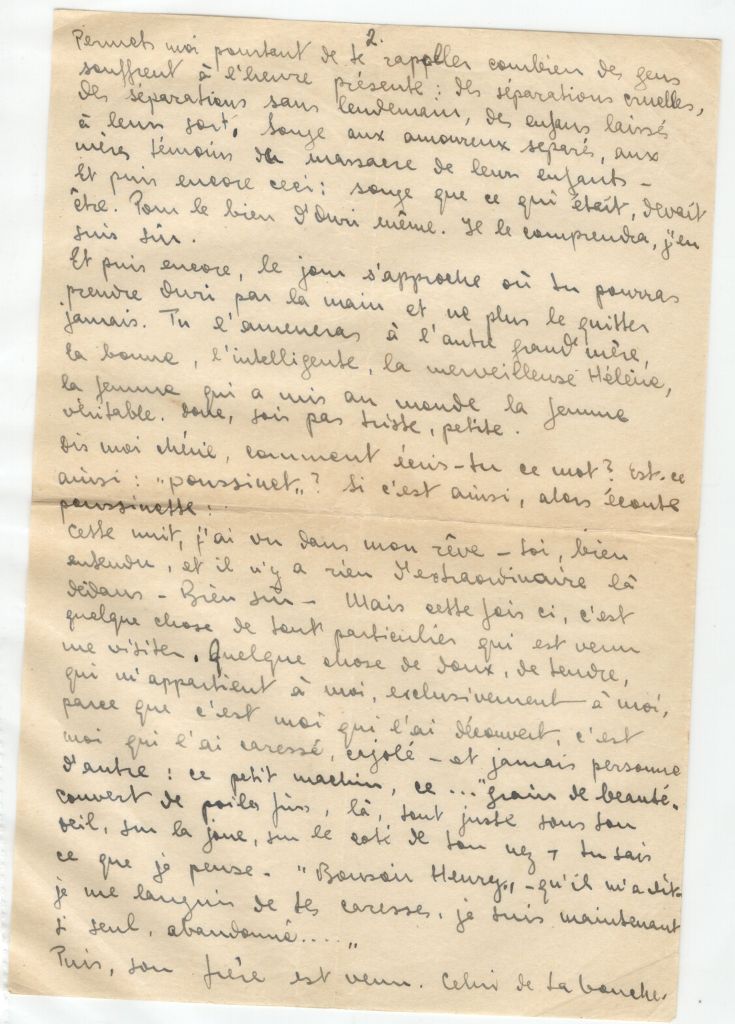 2.
Permets moi pourtant de te rappeller combien des gens
souffrent à l'heure présente : des séparations cruelles,
des séparations sans lendemain, des enfans laissé
à leurs sort. Songe aux amoureux separé, aux
mères témoins de massacre de leurs enfants -
Et puis encore ceci : songe que ce qui était, devait
être. Pour le bien d'Ouri même. Il le comprendra, j'en
suis sûr.
Et puis encore, le jour s'approche où tu pourras
prendre Ouri par la main et ne plus le quitter
jamais. Tu l'ameneras à l'autre grand'mère,
la bonne, l'intelligente, la merveilleuse Hélène,
la femme qui a mis au monde la femme
véritable. Donc, sois pas triste, petite.
Dis moi chérie, comment écris-tu ce mot? Est-ce
ainsi : "poussinet"? Si c'est ainsi, alors écoute
poussinette :
Cette nuit, j'ai vu dans mon rêve - toi, bien
entendu, et il n'y a rien d'extraordinaire là
dedans - Bien sûr - Mais cette fois ci, c'est
quelque chose de tout particulier qui est venu
me visiter. Quelque chose de doux, de tendre,
qui m'appartient à moi, exclusivement à moi,
parce que c'est moi qui l'ai découvert, c'est
moi qui l'ai caressé, cajolé - et jamais personne
d'autre : ce petit machin, ce ... "grain de beauté"
couvert de poiles fins, là, tout juste sous ton
oeil, sur la joue, sur le coté de ton nez - tu sais
ce que je pense - "Bonsoir Henry", - qu'il m'a dit -
je me languis de tes caresses, je suis maintenant
si seul, abandonné ...."
Puis, son frère est venu. Celui de ta bouche.